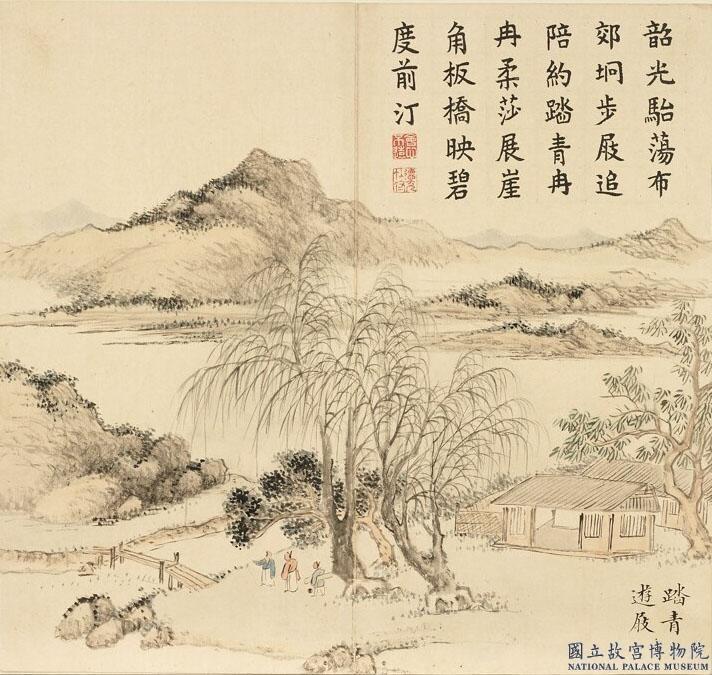 韶光駘蕩布
郊坰步屐追
陪約踏青冉
冉柔莎展崖
角板橋映碧
度前汀
踏青
遊屐
國立故宮博物院
NATIONAL PALACE MUSEUM